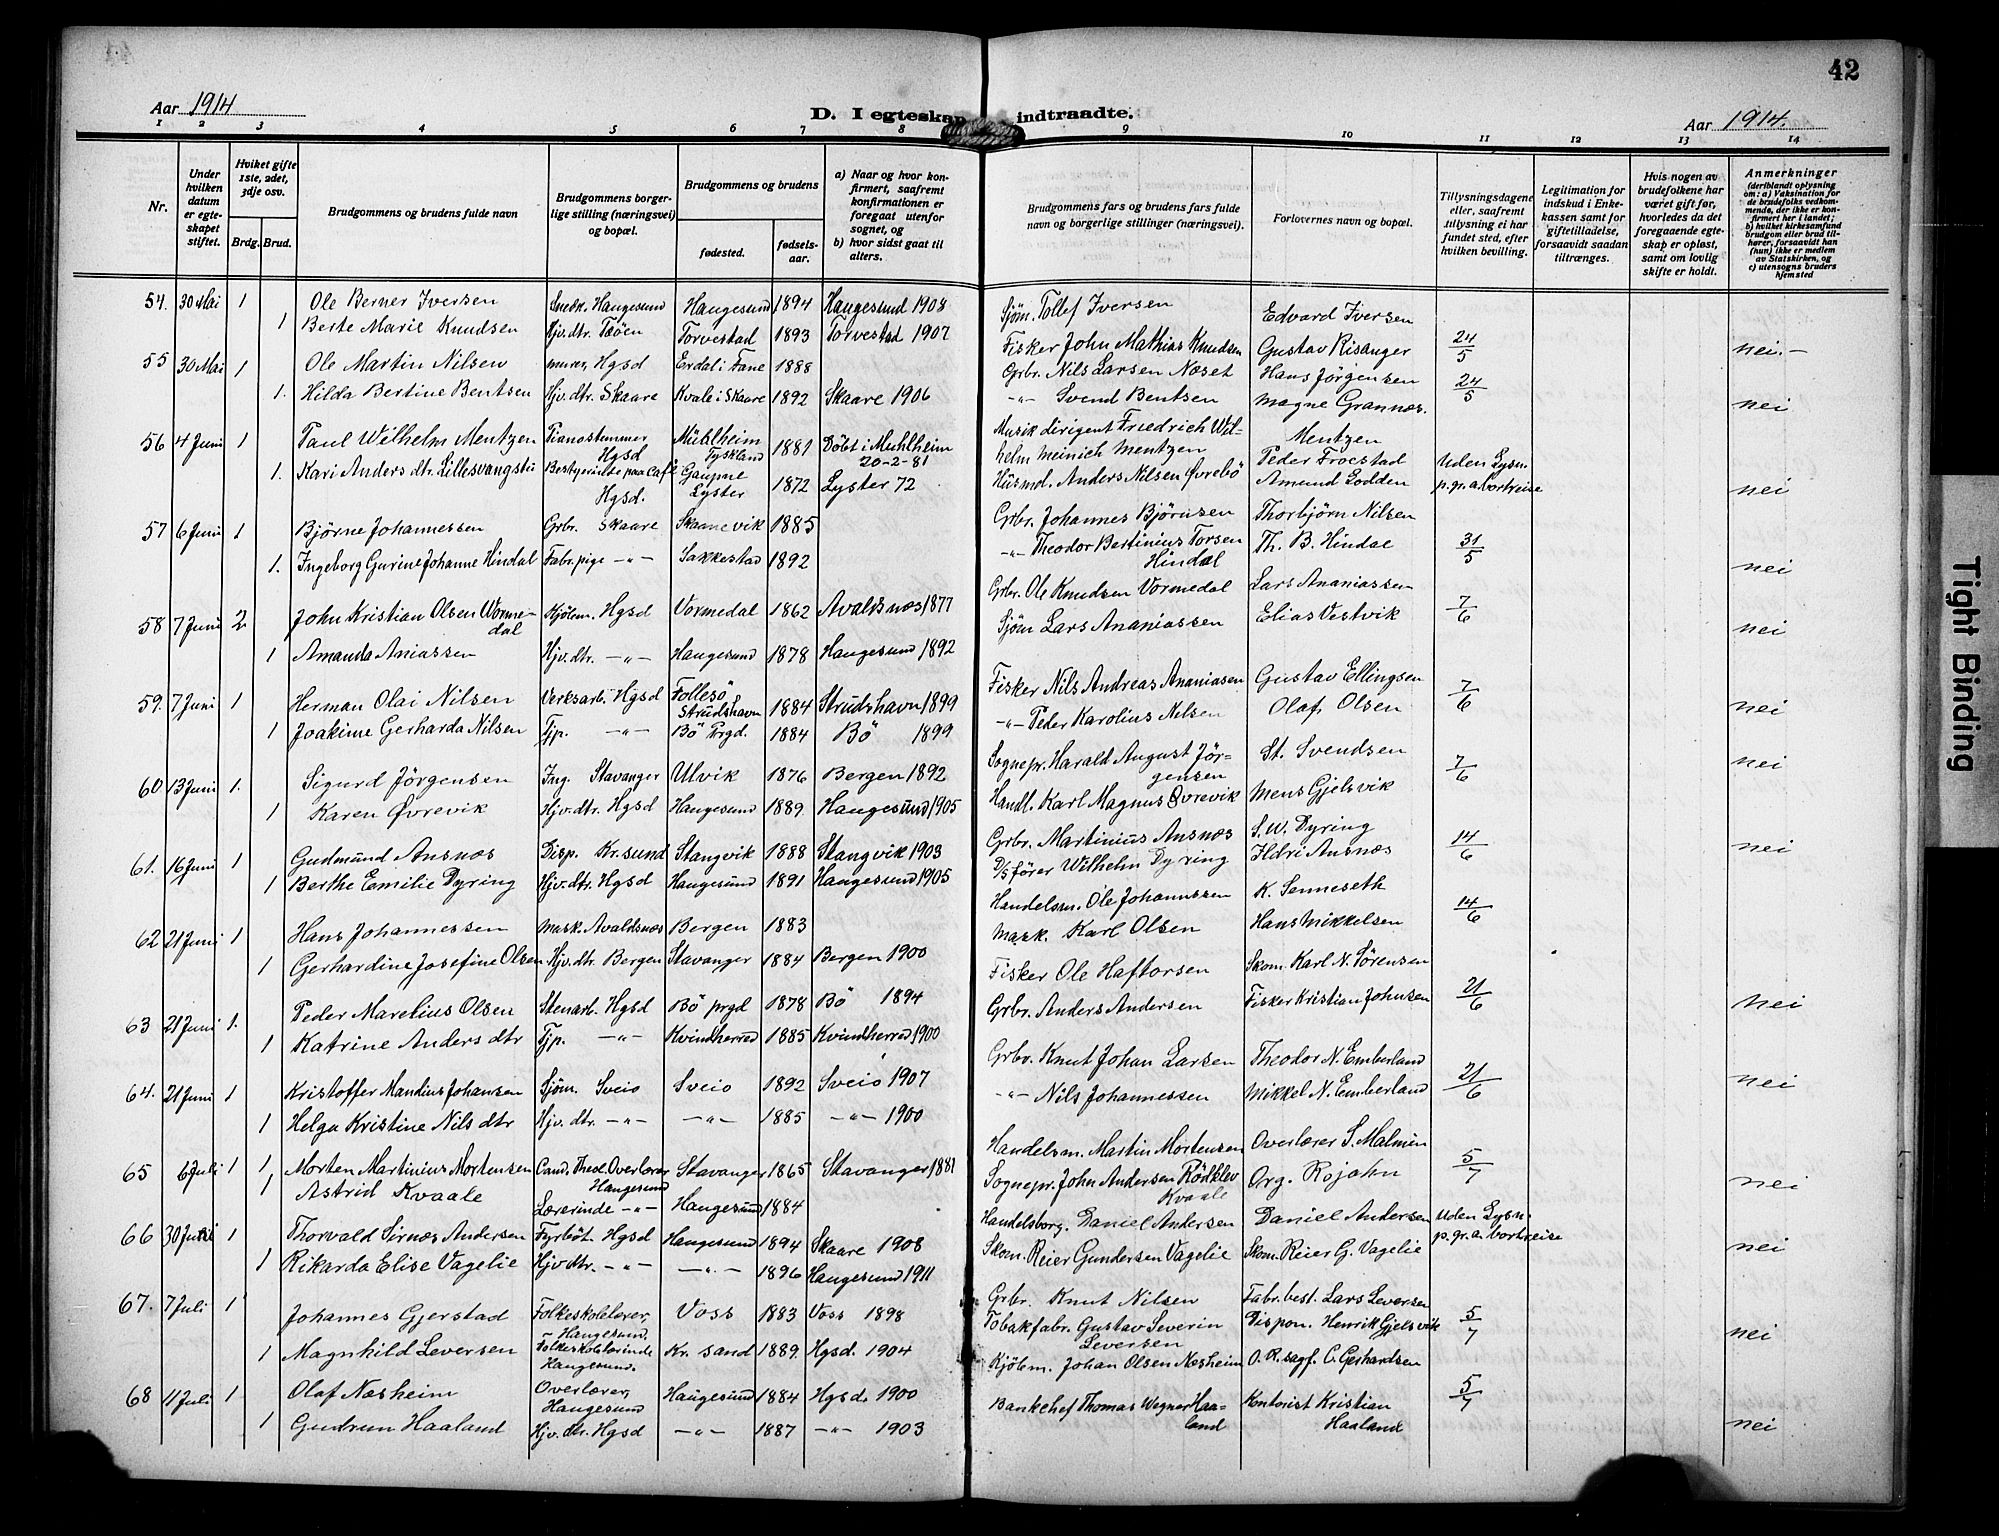 42
Aar 1914
D. I egteskap indtraadte.
Aar 1914.
1 2 3 4 5 6 7 8 9 10 11 12 13 14
Nr.
Under hvilken datum er egteskapet stiftet.
Hviket gifte 1ste, 2det, 3dje osv.
Brdg. Brud.
Brudgommens og brudens fulde navn
Brudgommens borgerlige stilling (næringsvei) og bopæl.
Brudgommens og brudens
fødested.
fødselsaar.
a) Naar og hvor konfirmert, saafremt konfirmationen er foregaat utenfor sognet, og
b) hvor sidst gaat til alters.
Brudgommens fars og brudens fars fulde navn og borgerlige stillinger (næringsvei).
Forlovernes navn og bopæl.
Tillysningsdagene eller, saafremt tillysning ei har fundet sted, efter hvilken bevilling.
Legitimation for indskud i Enkekassen samt for giftetilladelse, forsaavidt saadan tiltrænges.
Hvis nogen av brudefolkene har været gift før, hvorledes da det foregaaende egteskap er opløst, samt om lovlig skifte er holdt.
Anmerkninger
(deriblandt oplysning om: a) Vaksination for de brudefolks vedkommende, der ikke er konfirmert her i landet; b) hvilket kirkesamfund brudgom eller brud tilhører, forsaavidt han (hun) ikke er medlem av Statskirken, og c) utensogns bruders hjemsted
54. 30 Mai 1 Ole Berner Iversen Snedk. Haugesund Haugesund 1894 Haugesund 1908 Sjøm. Tollef Iversen Edvard Iversen
1 Berte Marie Knudsen Hjv. dtr. Torvestad 1893 Torvestad 1907 Fisker John Mathias Knudsen Gustav Risanger 24/5 nei.-
55 30 Mai 1 Ole Martin Nilsen murer, Hgsd Erdal i Fane 1888 Grbr. Nils Larsen Næset Hans Jörgensen 24/5
1. Hilda Bertine Bentsen Hjv. dtr. Skaare Kvale i Skaare 1892 Skaare 1906 -"- Svend Bentsen Magne Grannæs. nei
56 4 Juni 1 Paul Wilhelm Mentzen Pianostemmer Hgsd Mühlheim Tyskland 1881 Döbt i Muhlheim 20-2-81 Musik dirigent Friedrich Wilhelm Meinich Mentzen Mentzen
1. Kari Anders dtr. Lillesvangstu Bestyrerinde paa Café Hgsd. Gaupne Lyster 1872 Lyster 72 Husmd. Anders Nilsen Øvrebö Peder Froestad Amund Lodden Uden Lysn. p. gr. a. bortreise nei
57 6 Juni 1 Bjørne Johannessen Grbr. Skaare Skaanevik 1885 Grbr. Johannes Bjørnsen Thorbjörn Nilsen
1. Ingeborg Gurine Johanne Hindal Fabr. pige -"- Sakkestad 1892 -"- Theodor Bertinius Torsen Hindal Th. B. Hindal 31/5 nei
58 7 Juni 2 John Kristian Olsen Wormedal Kjølem. Hgsd Vormedal 1862 Avaldsnæs 1877 Grbr. Ole Knudsen Vormedal Lars Ananiassen
1 Amanda Aniassen Hjv. dtr. -"- Haugesund 1878 Haugesund 1892 Sjøm Lars Ananiassen Elias Vestvik 7/6 nei
59. 7 Juni 1 Herman Olai Nilsen Verksarb. Hgsd Follesö Strudshavn 1884 Strudshavn 1899 Fisker Nils Andreas Ananiasen Gustav Ellingsen 7/6
1 Joakime Gerharda Nilsen Tjp. -"- Bö Prgd. 1884 Bö 1899 -"- Peder Karolius Nilsen Olaf Olsen nei
60 13 Juni 1. Sigurd Jörgensen Ing. Stavanger Ulvik 1876 Bergen 1892 Sognepr. Harald August Jörgensen St. Svendsen 7/6 nei
1 Karen Øvrevik Hjv. dtr. Hgsd Haugesund 1889 Haugesund 1905 Handl. Karl Magnus Øvrevik Mens Gjelsvik
61. 16 Juni 1 Gudmund Ansnæs Disp. Kr.sund Stangvik 1888 Stangvik 1903 Grbr. Martinius Ansnæs S. W. Dyring 14/6 nei
1 Berthe Emilie Dyring Hjv. dtr. Hgsd Haugesund 1891 Haugesund 1905 D/s fører Wilhelm Dyring Ildri Ansnæs
62 21 Juni 1 Hans Johannessen Mask. Avaldsnæs Bergen 1883 Handelsm. Ole Johannessen K. Senneseth 14/6
1 Gerhardine Josefine Olsen Hjv. dtr. Bergen Stavanger 1884 Bergen 1900 Mask. Karl Olsen Hans Mikkelsen
63 21 Juni 1. Peder Marelius Olsen Stenarb. Hgsd Bö prgd 1878 Bö 1894 Fisker Ole Haftorsen Skom. Karl N. Sørensen 21/6 nei
1 Katrine Anders dtr Tjp. -"- Kvindherred 1885 Kvindherred 1900 Grbr. Anders Andersen Fisker Kristian Johnsen
64. 21 Juni 1 Kristoffer Mandius Johansen Sjøm. Sveio Sveio 1892 Sveio 1907 Grbr. Knut Johan Larsen Theodor N. Emberland 21/6 nei
1 Helga Kristine Nils dtr Hjv. dtr. -"- -"- 1885 -"- 1900 -"- Nils Johannessen Mikkel N. Emberland
65 6 Juli 1 1 Morten Martinius Mortensen Cand. Theol. Overlærer Haugesund Stavanger 1865 Stavanger 1881 Handelsm. Martin Mortensen Overlærer S. Malmin 5/7
1 Astrid Kvaale Lærerinde -"- Haugesund 1884 Sognepr. John Andersen Rödklev Kvaale Org. Rojahn nei
66 30 Juni 1 Thorvald Sirnæs Andersen Fyrböt. Hgsd Haugesund 1894 Skaare 1908 Handelsborg. Daniel Andersen Daniel Andersen Uden Lysn. p. gr. a. bortreise
1 Rikarda Elise Vagelie Hjv dtr. -"- -"- 1896 Haugesund 1911 Skom. Reier Gundersen Vagelie Skom. Reier G. Vagelie nei
67. 7 Juli 1 Johannes Gjerstad Folkeskolelærer, Haugesund. Voss 1883 Voss 1898 Grbr. Knut Nilsen Fabr. best. Lars Leversen 5/7
1 Magnhild Leversen Folkeskolelærinde Haugesund. Kr. sand 1889. Hgsd. 1904 Tobakfabr. Gustav Severin Leversen Dispon. Henrik Gjelsvik nei
68 11 Juli 1 Olaf Næsheim Overlærer, Haugesund Haugesund 1884 Hgsd. 1900 Kjölem. Johan Olsen Næsheim O. R. sagf. C. Gerhardsen 5/7
1 Gudrun Haaland Hjv. dtr. Hgsd -"- 1887 -"- 1903 Bankchef Thomas Wegner Haaland Kontorist Kristian Haaland nei
Tight Binding